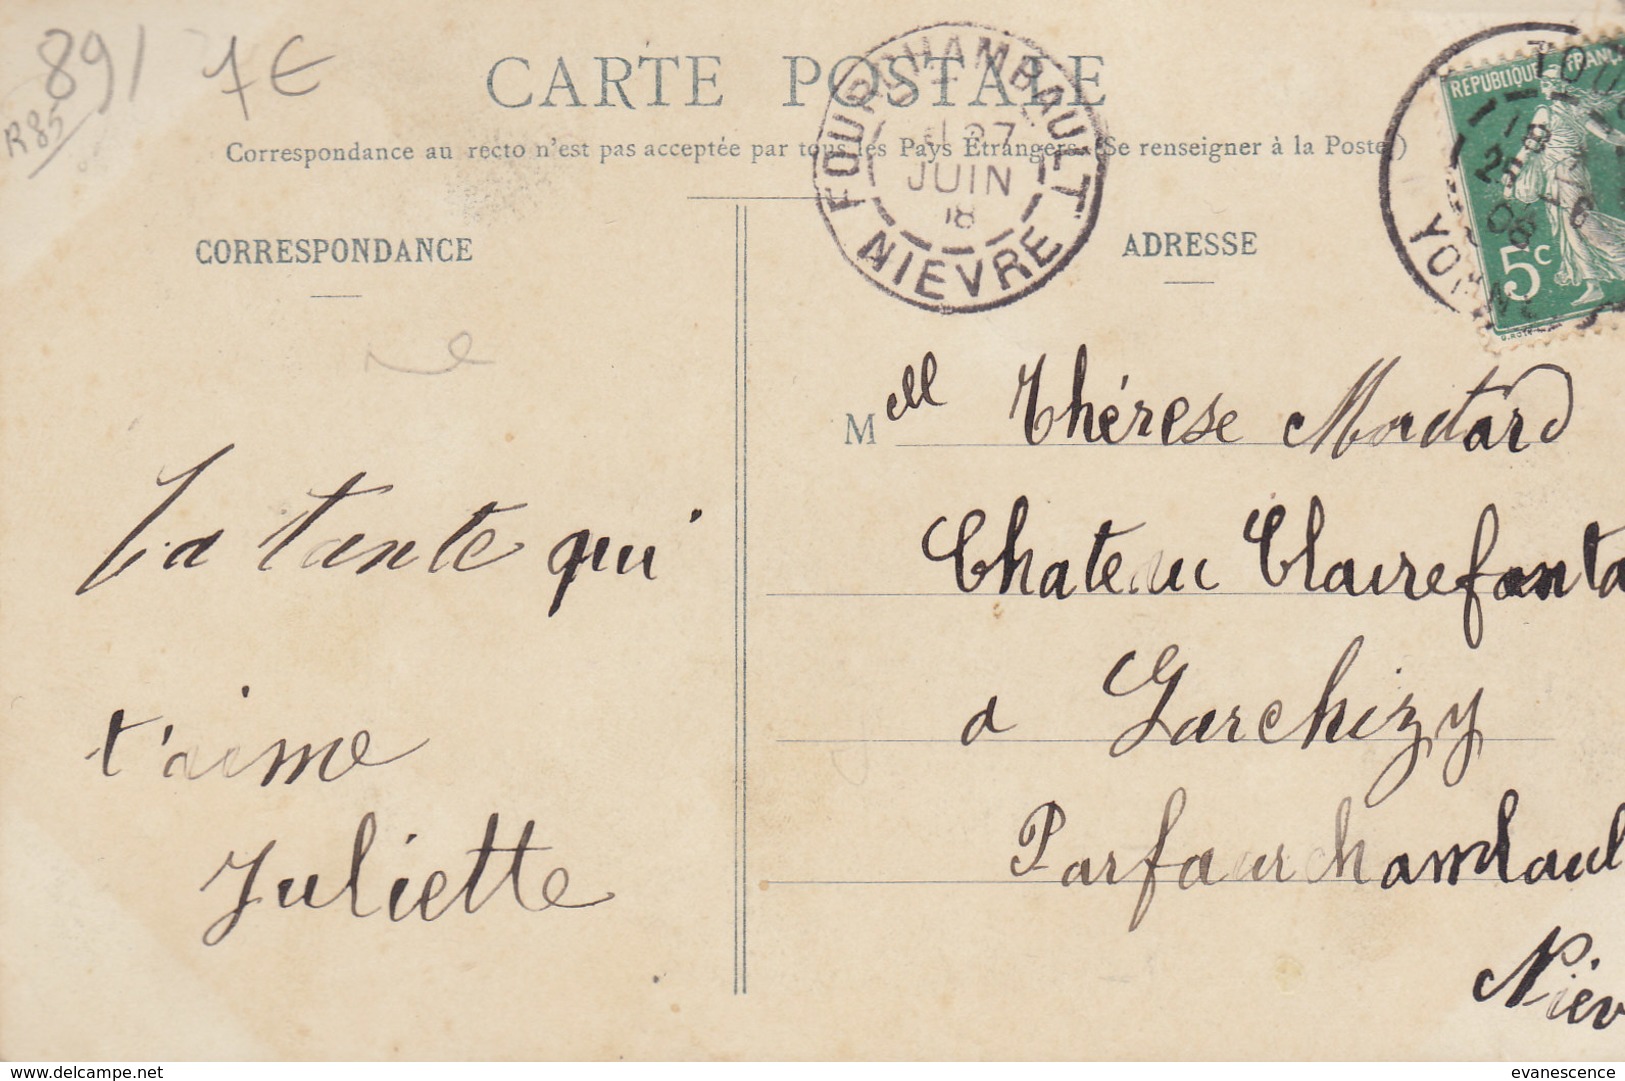 891 7€
R85
CARTE POSTALE
Correspondance au recto n'est pas acceptée par tous les Pays Étrangers (Se renseigner à la Poste)
FOURCHAMBAULT
27
JUIN
08
NIEVRE
RÉPUBLIQUE FRANÇ
5c
YONNE
CORRESPONDANCE
ADRESSE
La tante qui
t'aime
Juliette
Mell Thérèse Moutard
Chateau Clairefonta
a Garchizy
Parfaurchambaul
Nièv
https://www.delcampe.net
evanescence